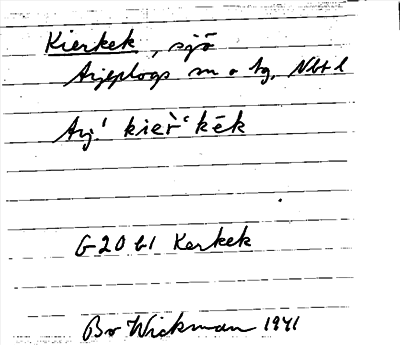 Kierkek, sjö
Arjeplogs sn o tg, Nbt l
Arj! kieř̀ʿkēk
G 20 b1 Kerkek
Bo Wickman 1941